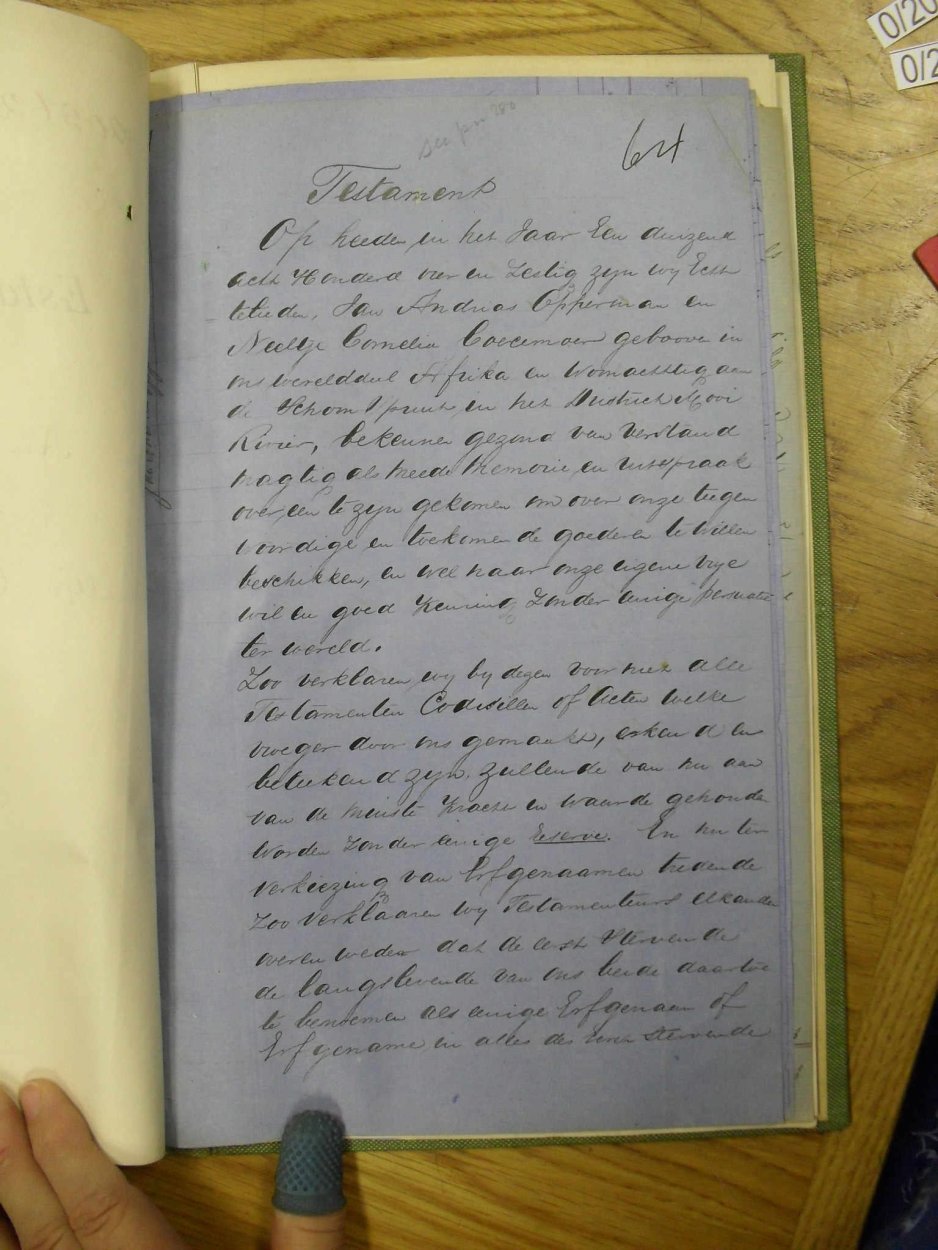 64
Testament
Op heeden in het Jaar Een duizend
acht Honderd vier en Zestig zyn wy Echt
telieden, Jan Andries Opperman en
Neeltje Cornelia Coetzmoer geboore in
ons werelddeel Afrika en Woonachtig aan
de Schoon Spruit, in het District Mooi
Rivier, bekennen gezond van Verstand
magtig als meede Memorie, en Uitspraak
over een te zyn gekomen om over onze teegen
woordige en toekomen de goederen te willen
beschikken, en wel naar onze eigene vrye
wil en goed Keuring, Zonder eenige persuatie
ter wereld.
Zoo verklaren wy by dezen voor niet alle
Testamenten Codisillen of Acten welke
vroeger door ons gemaakt, erkend en
beteekend zyn. zullende van nu aan
van de minste Kracht en waarde gehouden
worden zonder eenige Reserve. En nu ter
verkiezing van Erfgenaamen tredende
Zoo verklaaren wy Testamenteurs elkander
over en weder dat de eerst Stervende
de langslevende van ons beide daartoe
te benoemen als eenige Erfgenaam of
Erfgename in alles des Eerst Stervende
0/20
0/2